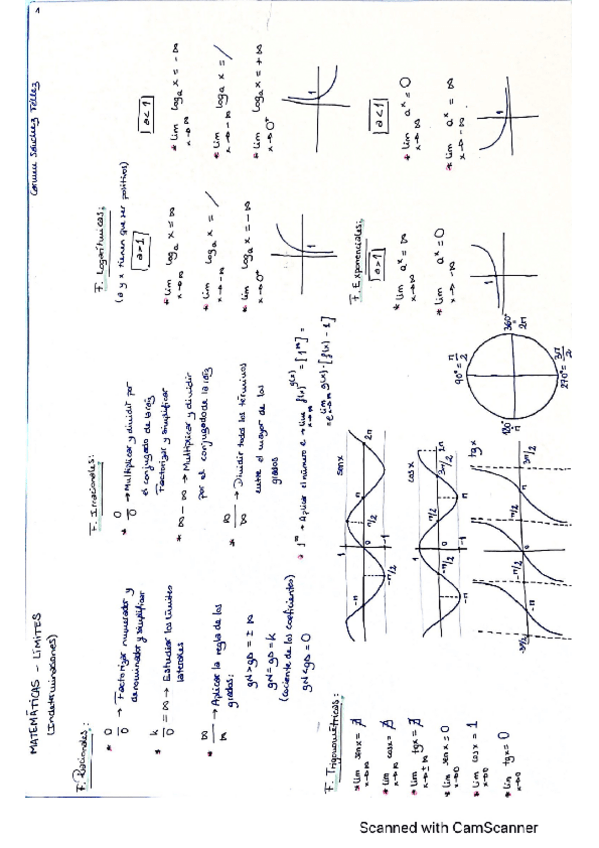 MATEMÁTICAS - LÍMITES
(Indeterminaciones)
1
F. Racionales:
* 0/0 → Factorizar numerador y
denominador y simplificar
* k/0 = ∞ → Estudiar los límites
laterales
* ∞/∞ → Aplicar la regla de los
grados:
gN>gD = ± ∞
gN=gD = k
(cociente de los coeficientes)
gN<gD = 0
F. Irracionales:
* 0/0 → Multiplicar y dividir por
el conjugado de la raíz
Factorizar y simplificar
* ∞ - ∞ → Multiplicar y dividir
por el conjugado de la raíz
* ∞/∞ → Dividir todos los términos
entre el mayor de los
grados
* 1^∞ → Aplicar el número e → lim x→∞ f(x)^g(x) = [1^∞] =
= e^lim x→∞ g(x)·[f(x) - 1]
F. Logarítmicas:
(a y x tienen que ser positivos)
a>1
* lim x→∞ logₐ x = ∞
* lim x→-∞ logₐ x = /
* lim x→0⁺ logₐ x = -∞
1
a<1
* lim x→∞ logₐ x = -∞
* lim x→-∞ logₐ x = /
* lim x→0⁺ logₐ x = +∞
1
F. Exponenciales:
a>1
* lim x→∞ aˣ = ∞
* lim x→-∞ aˣ = 0
1
a<1
* lim x→∞ aˣ = 0
* lim x→-∞ aˣ = ∞
1
F. Trigonométricas:
* lim x→∞ sen x = ∄
* lim x→∞ cos x = ∄
* lim x→±∞ tg x = ∄
* lim x→0 sen x = 0
* lim x→0 cos x = 1
* lim x→0 tg x = 0
sen x
1
-π -π/2 0 π/2 π 2π
-1
cos x
1
-π -π/2 0 π/2 π 3π/2 2π
-1
tg x
-3π/2 -π -π/2 0 π/2 π 3π/2
90° = π/2
360° 2π
π
270° = 3π/2
Scanned with CamScanner